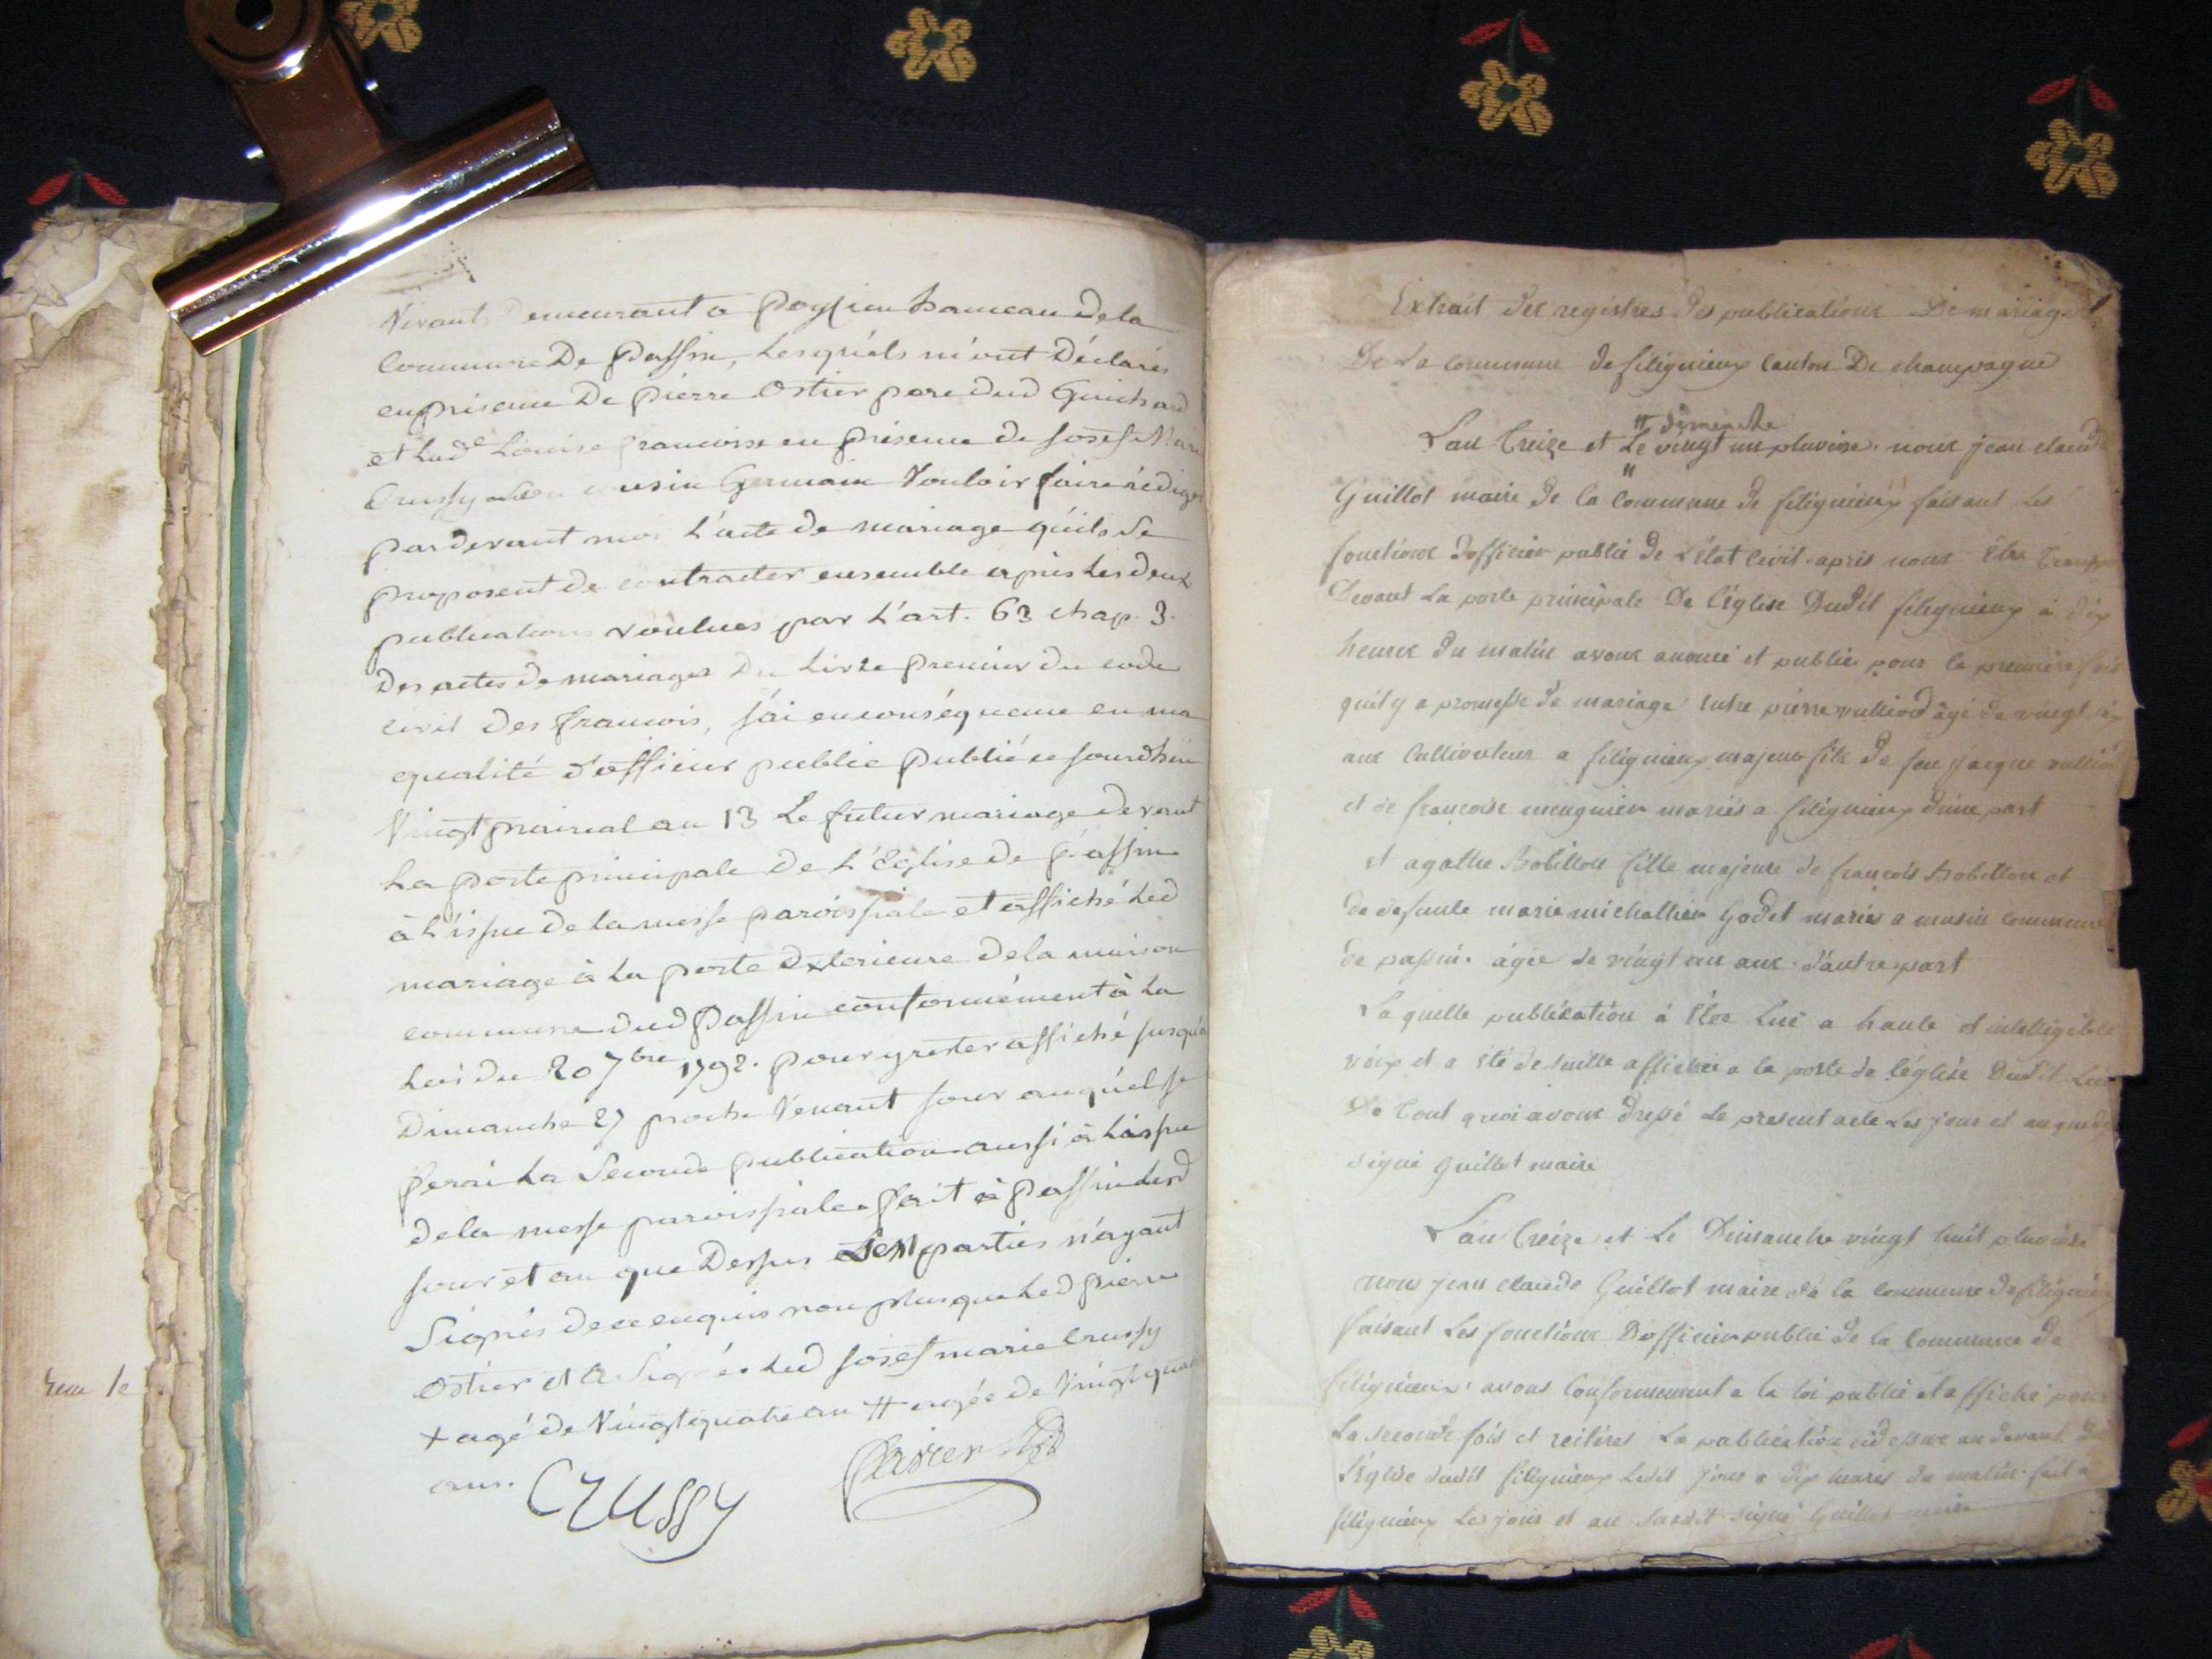 Vivant Demeurant a Poysieu hameau De la
Commune De Passin, Lesquéls m'ont Déclarés
en présence De Pierre Ostier pere dud Guichard
et Lad.e Louise francoise en présence de Josef Marie
Crussy cousin Germain Vouloir faire rédiger
pardevant moi L'acte de mariage qúils se
proposent de contracter ensemble après Les deux
publications voulues par L'art. 63 chap. 3.
Des actes de mariages Du Livre Premier du code
civil des francois, J'ai en conséquence en ma
qualité d'officier public Publié ce jourdhui
Vingt prairial an 13 Le futur mariage devant
La porte principale de L'Eglise de Passin
à L'issue de la messe paroissiale et affiché Led
mariage à la porte Exterieure de la maison
commune dud Passin conformément à La
Loi du 20 7bre 1792. pour y rester affiché jusqu'a
Dimanche 27 proche Venant jour auquél je
ferai La Seconde publication aussi à L'issue
de la messe paroissiale fait à Passin Lesd
jour et an que Dessus Les parties n'ayant
Signés de ce enquis non plus que Led pierre
Ostier et a Signé Led Josef marie Crussy
+ agé de Vingt quatre an # agée de Vingt quatre
ans. Crussy
Extrait des registres des publications De mariage
De La commune de selignieux Canton De champagne
# dimanche
L'an treize et Le vingt un pluviose. nous jean claude
Guillot maire de la Commune de selignieux faisant Les
fonctions D'officier public de L'état civil. après nous être transporté
Devant La porte principale De l'église Dudit selignieux a dix
heures du matin avons anoncé et publié pour la première fois
quil y a promesse de mariage entre pierre vulliod âgé de vingt six
ans Cultivateur a selignieux majeur fils de feu jacque vulliod
et de françoise meugnier mariés a selignieux d'une part
et agathe Bobillon fille majeure de francois Bobillon et
de defunte marie michallier Godet mariés a musin commune
de passin. âgée de vingt un ans. d'autre part
Laquelle publication à êtée Lue a haute et intelligible
voix et a été de suitte affichée a la porte de l'église Dudit Lieu
De tout quoi avons dressé Le present acte Les jour et an que dessus
signé Guillot maire
L'an treize et Le Dimanche vingt huit pluviose
nous jean claude Guillot maire de la commune de selignieux
faisant Les fonctions D'officier public de la Commune de
selignieux. avons Conformement a la loi publié et affiché pour
La seconde fois et reiteré La publication cidessus au devant de
L'église dudit selignieux Ledit jour a dix heures du matin. fait a
selignieux Les jour et an susdit signé Guillot maire